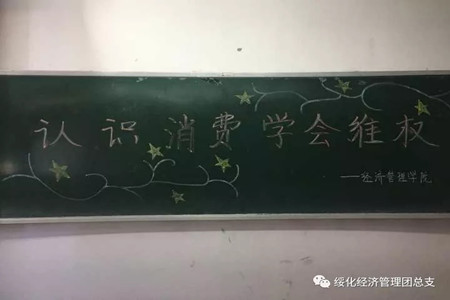 认识消费学会维权
——经济管理学院
绥化经济管理团总支